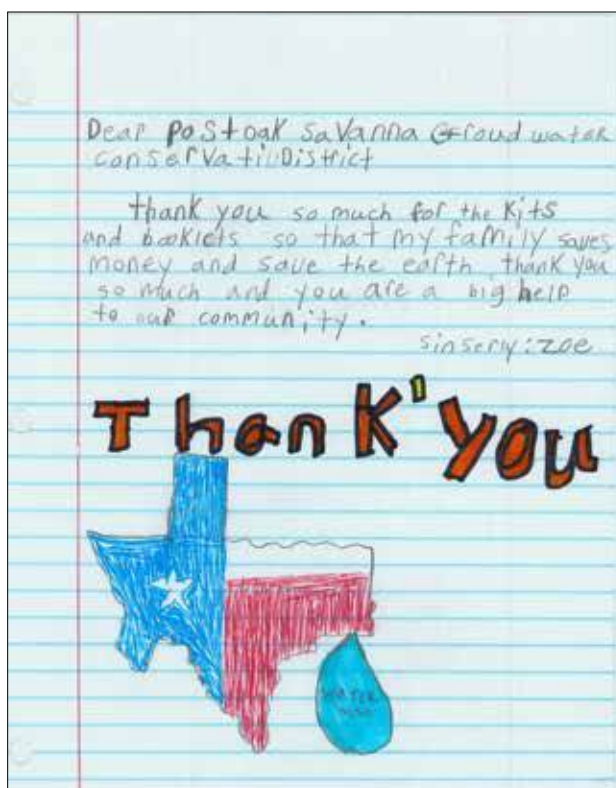 Dear Postoak Savanna Groud water
conservatiDistrict
thank you so much for the Kits
and booklets so that my family saves
money and save the earth. thank you
so much and you are a big help
to our community.
sinserly:zoe
Thank' You
WATER